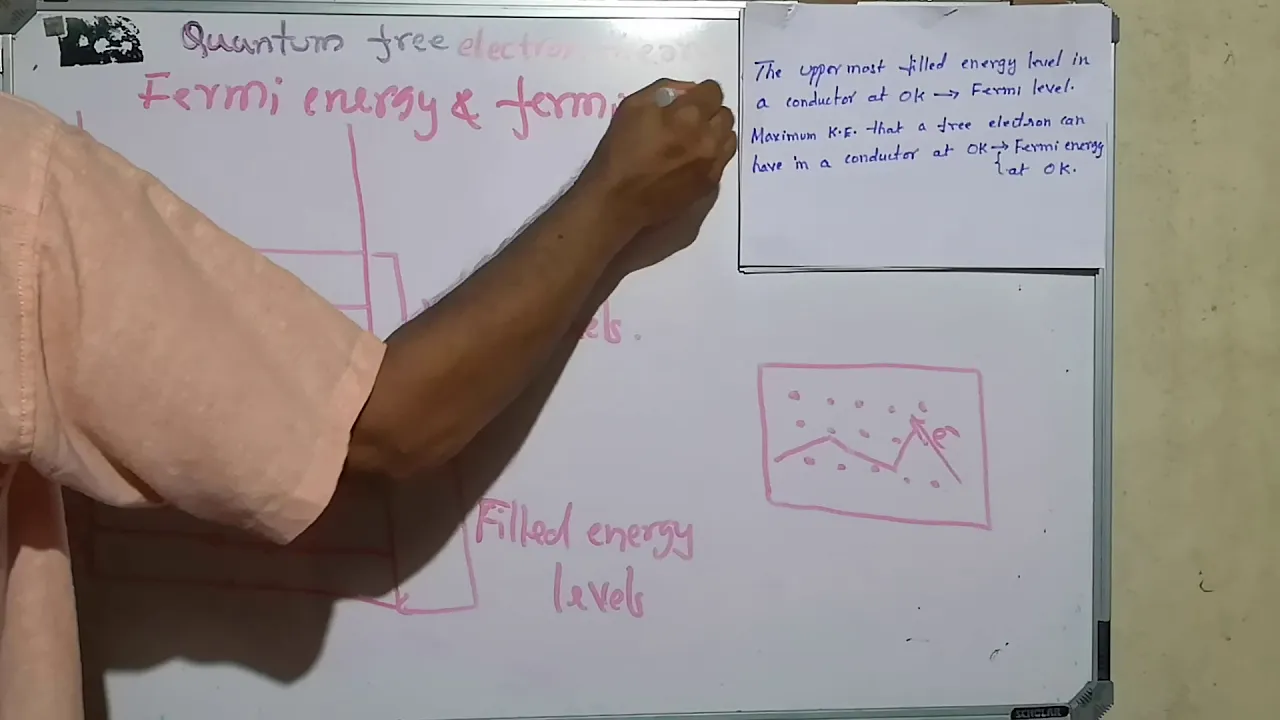 Quantum free electron
Fermi energy & fermi
The uppermost filled energy level in
a conductor at 0K → Fermi level.
Maximum K.E. that a free electron can
have in a conductor at 0K → Fermi energy
at 0K.
els.
e-
Filled energy
levels
SCHOLAR